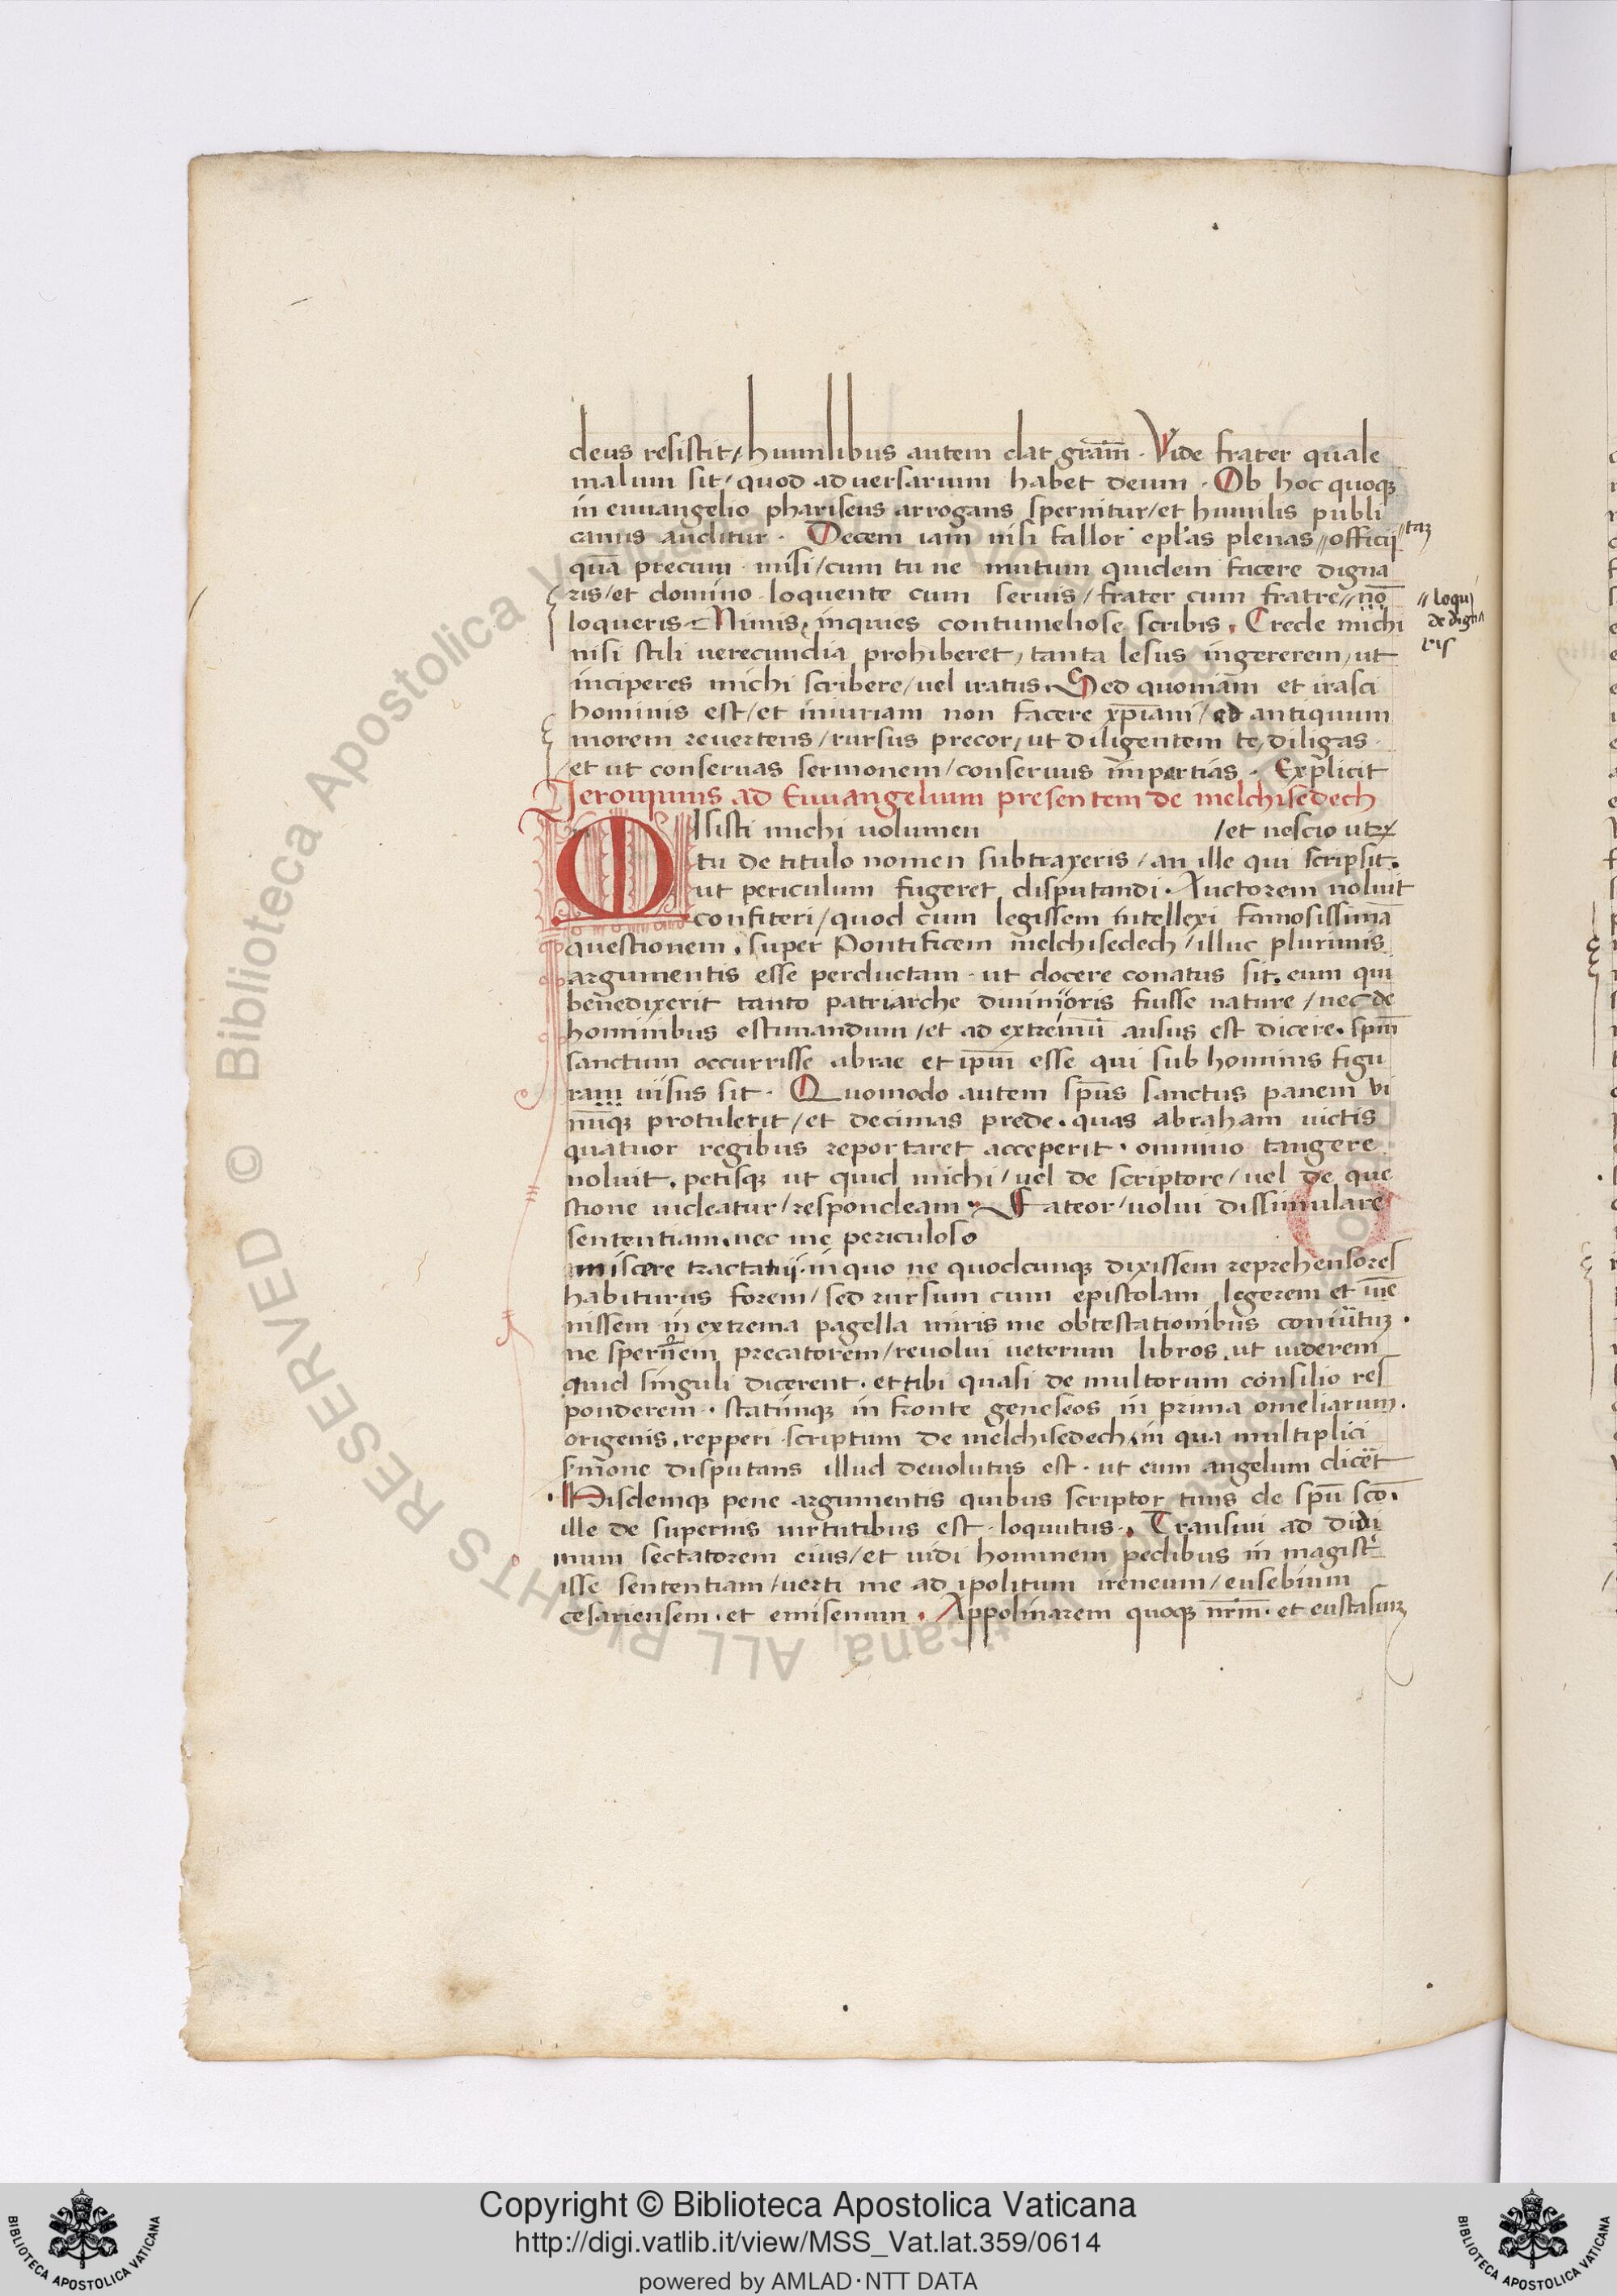 deus resistit/humilibus autem dat grãm · Vide frater quale
malum sit/quod adversarium habet deum · Ob hoc quoqꝫ
in euuangelio phariseus arrogans spernitur/et humilis publi
canus auditur · Decem iam nisi fallor epl'as plenas //officij //taꝫ
quã precum misi/cum tu ne mutum quidem facere digna
ris/et domino loquente cum seruis/frater cum fratre//nõ // loqui
loqueris · Nimis, inquies contumeliose scribis. Crede michi de digna
nisi stili uerecundia prohiberet, tanta lesus ingererem, ut ris
inciperes michi scribere/uel iratus. Sed quoniam et irasci
hominis est/et iniuriam non facere xp̃iani/ad antiquum
morem reuertens/rursus precor, ut diligentem te diligas
/et ut conseruas sermonem/conseruus impertias · Explicit
Jeronimus ad Euuangelium presentem de melchisedech
Misisti michi uolumen /et nescio utꝝ
tu de titulo nomen subtraxeris/an ille qui scripsit.
ut periculum fugeret disputandi · Auctorem noluit
confiteri/quod cum legissem intellexi famosissimã
questionem. super Pontificem melchisedech/illuc plurimis
argumentis esse perductam · ut docere conatus sit. eum qui
benedixerit tanto patriarche diuinioris fuisse nature/nec de
hominibus estimandum/et ad extremũ ausus est dicere. sp̃m
sanctum occurrisse abrae et ip̃m esse qui sub hominis figu
ram uisus sit · Quomodo autem sp̃us sanctus panem vi
nũqꝫ protulerit/et decimas prede. quas abraham uictis
quatuor regibus reportaret acceperit · omnino tangere
noluit. petisqꝫ ut quid michi/uel de scriptore/uel de que
stione uideatur/respondeam. Fateor/uolui dissimulare
sententiam. nec me periculoso
miscere tractatui · in quo ne quodcunqꝫ dixissem reprehensores
habiturus forem/sed rursum cum epistolam legerem et inuẽ
nissem in extrema pagella miris me obtestationibus
ne spernerem precatorem/reuolui ueterum libros. ut uiderem
quid singuli dicerent · et tibi quasi de multorum consilio res
ponderem · statimqꝫ in fronte geneseos in prima omeliarum.
origenis. repperi scriptum de melchisedech. in qua multiplici
s̃mone disputans illud deuolutus est · ut eum angelum diceret
· Hisdemqꝫ pene argumentis quibus scriptor tuus de sp̃u sc̃o.
ille de supernis uirtutibus est loquutus. Transiui ad didi
mum sectatorem eius/et uidi hominem pedibus in magistri
isse sententiam/uerti me ad ipolitum ireneum/eusebium
cesariensem · et emisenum. Appolinarem quoqꝫ nr̃m · et eustasiuꝫ
Biblioteca Apostolica Vaticana ALL RIGHTS RESERVED ©
BIBLIOTECA APOSTOLICA VATICANA
Copyright © Biblioteca Apostolica Vaticana
http://digi.vatlib.it/view/MSS_Vat.lat.359/0614
powered by AMLAD·NTT DATA
BIBLIOTECA APOSTOLICA VATICANA